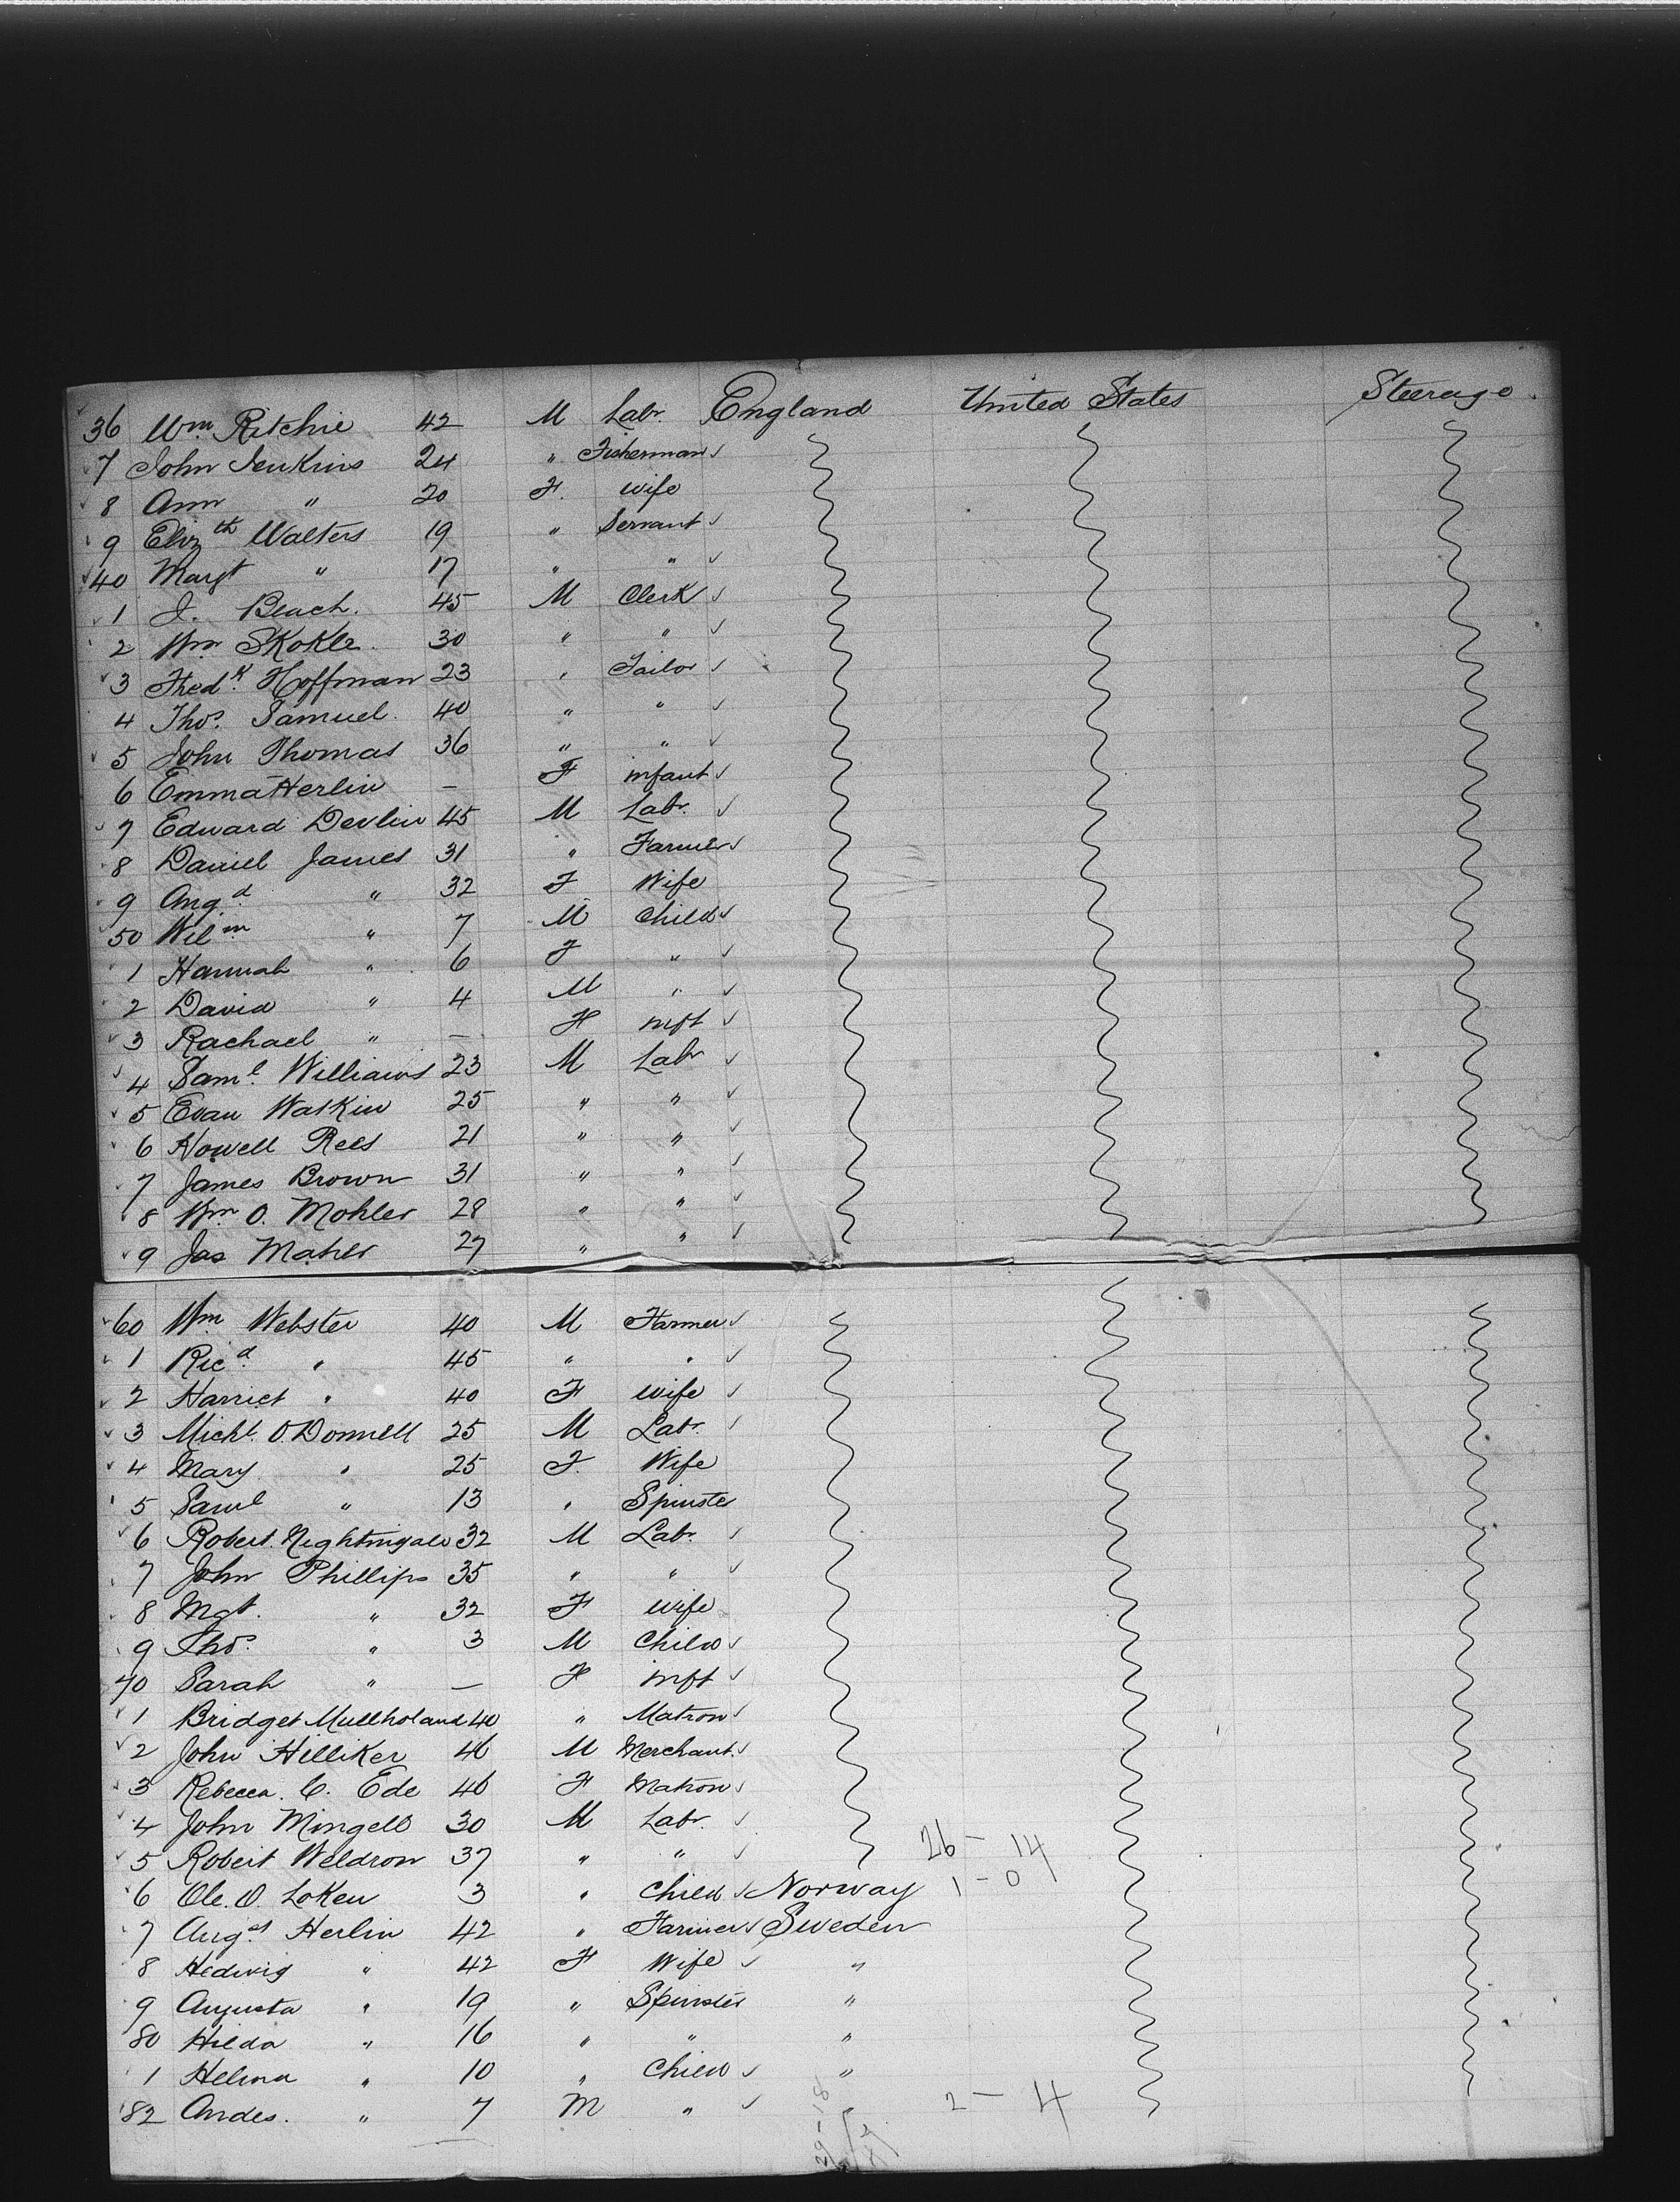 36 Wm Ritchie 42 M Labr. England United States Steerage.
7 John Jenkins 24 " Fisherman
8 Ann " 20 F. Wife
9 Elizth Walters 19 " Servant
40 Margt " 17 " "
1 J. Beach. 45 M Clerk
2 Wm SKoKle. 30 " "
3 Fredk. Hoffman 23 " Tailor
4 Thos. Samuel. 40 " "
5 John Thomas 36 " "
6 Emma Herlin — F infant
7 Edward Devlin 45 M Labr.
8 Daniel James 31 " Farmer
9 Angd. " 32 F Wife
50 Wilm " 7 M Child
1 Hannah " 6 F "
2 David " 4 M "
3 Rachael " — F inft
4 Saml. Williams 23 M Labr
5 Evan Watkin 25 " "
6 Howell Rees 21 " "
7 James Brown 31 " "
8 Wm O. Mohler 28 " "
9 Jas Maher 27 " "
60 Wm Webster 40 M Farmer
1 Ricd. " 45 " "
2 Harriet " 40 F Wife
3 Michl. O.Donnell 25 M Labr.
4 Mary " 25 F. Wife
5 Saml " 13 " Spinster
6 Robert Nightingale 32 M Labr.
7 John Phillips 35 " "
8 Mgt. " 32 F Wife
9 Thos. " 3 M Child
70 Sarah " — F inft
1 Bridget Mullholand 40 " Matron
2 John Hilliker 46 M Merchant.
3 Rebecca. C. Ede 46 F Matron
4 John Mingell 30 M Labr.
5 Robert Weldron 37 " " 26 — 14
6 Ole. O. LoKen 3 " Child Norway 1 - 0
7 Augst Herlin 42 " Farmer Sweden
8 Hedwig " 42 F Wife "
9 Augusta " 19 " Spinster "
80 Hilda " 16 " " "
1 Helma " 10 " Child "
82 Andes. " 7 M " 2 — 4
29-18